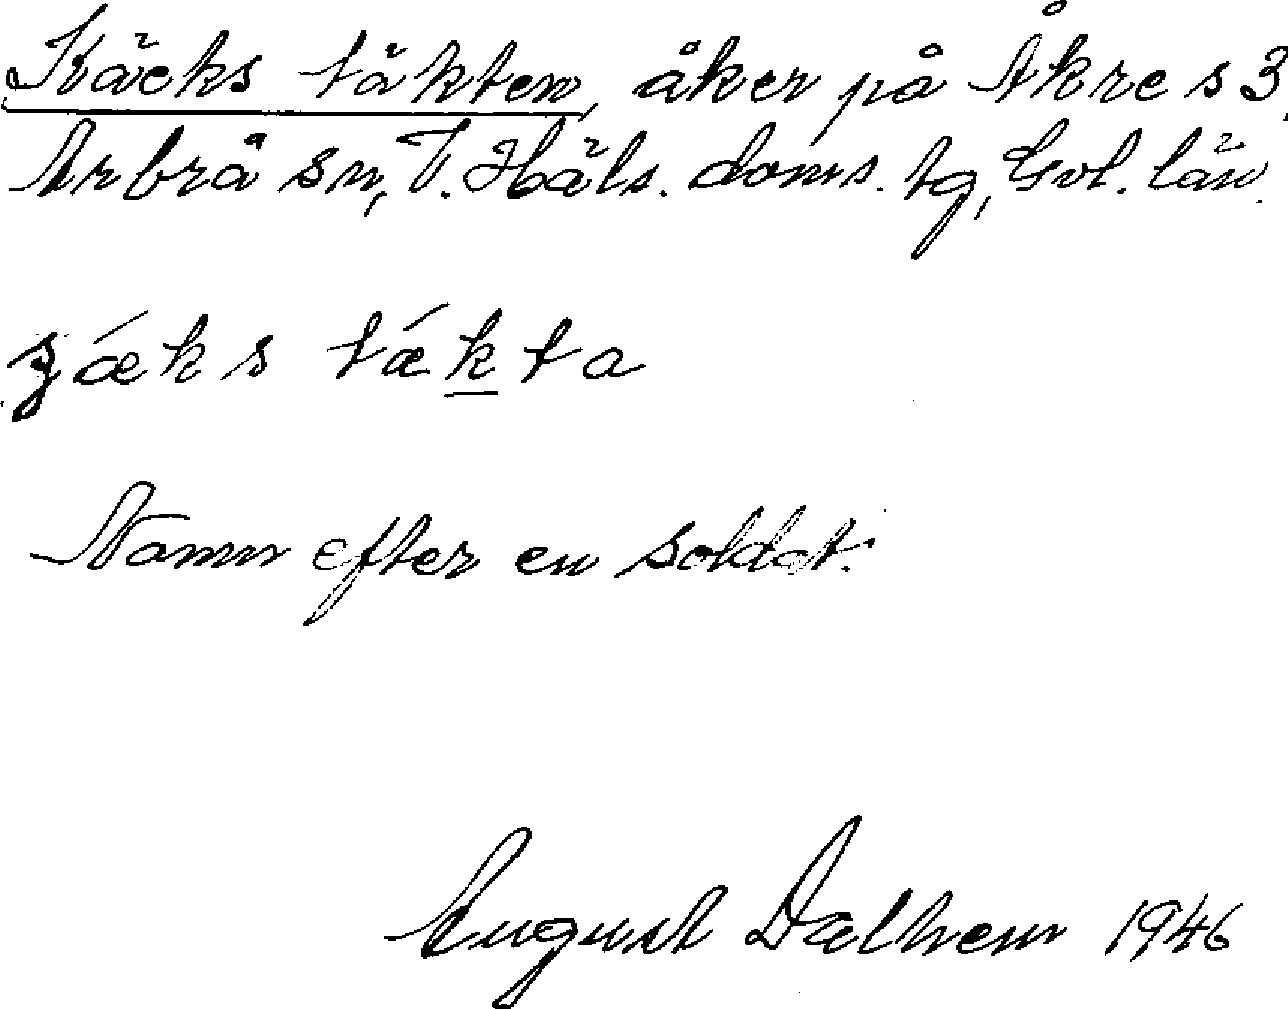 Käcks täkten, åker på Åkre s 3,
Arbrå sn, V. Häls. doms. tg, Gvl. län.
tákta
Namn efter en soldat.
August Dalhem 1946